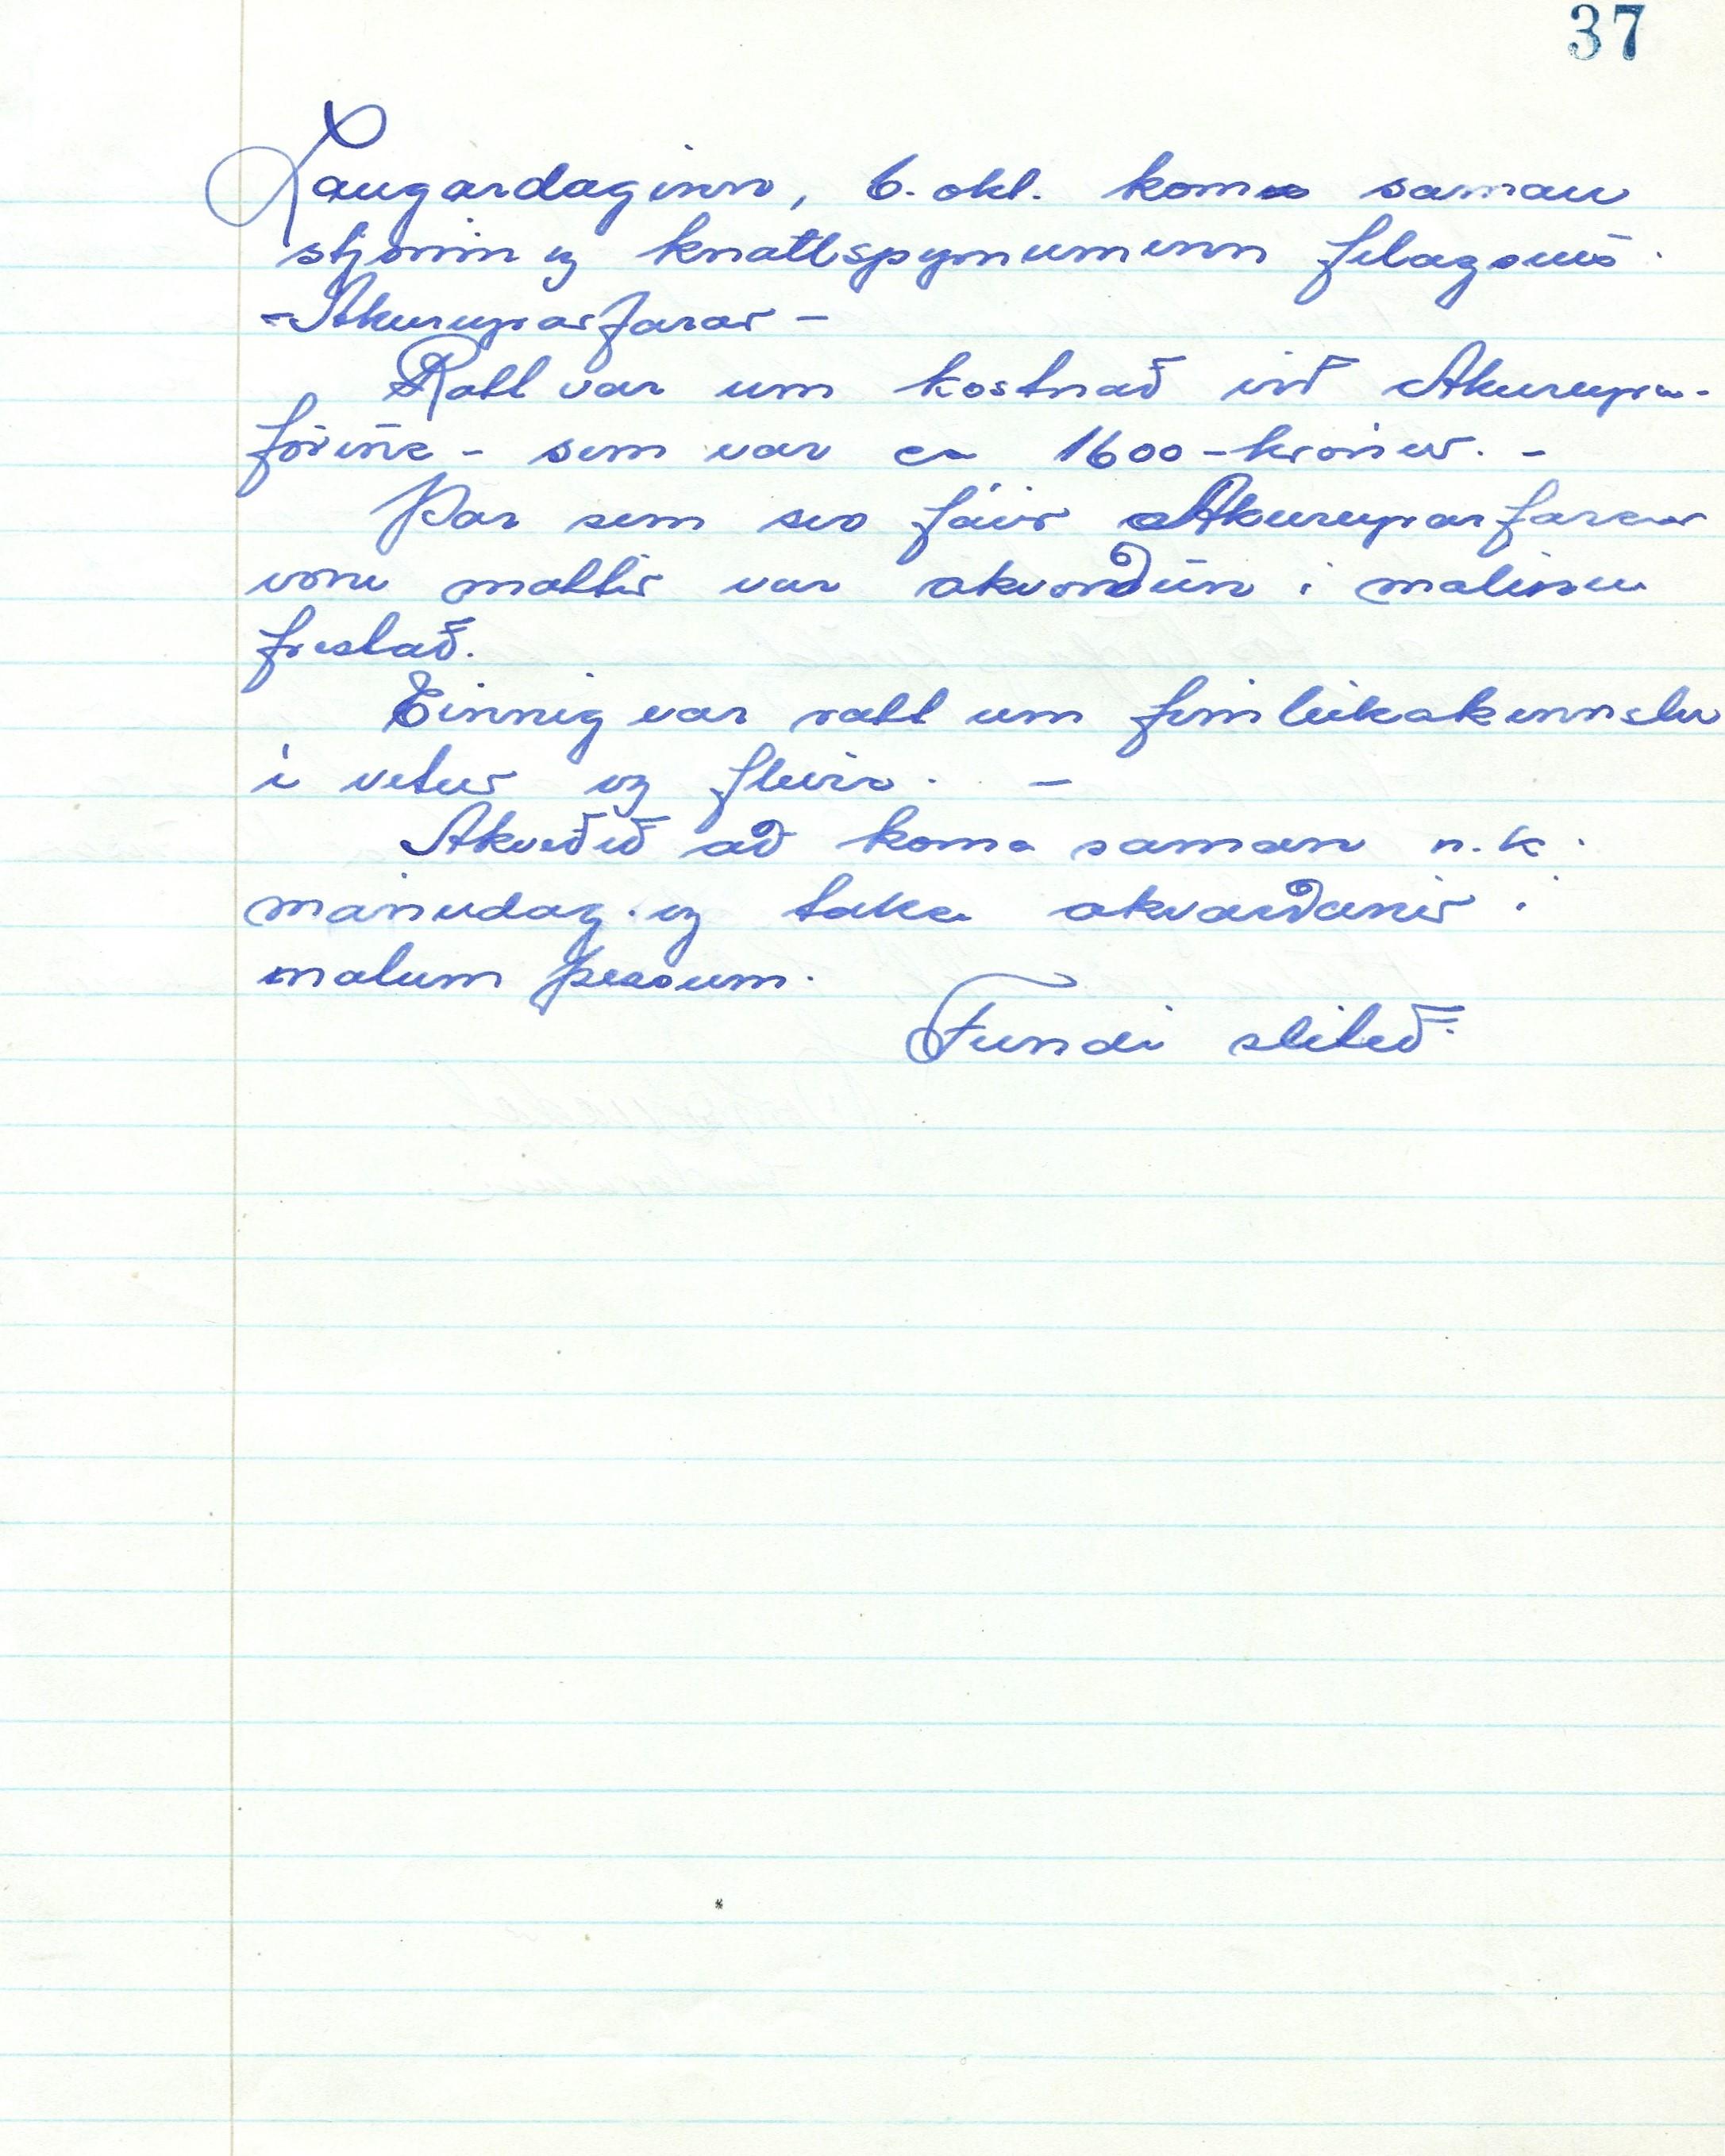 37
Laugardaginn, 6. okt. koma saman
stjórnin og knattspyrnumenn félagsins.
- Akureyrarfarar -
Rætt var um kostnað við Akureyra-
förina - sem var ca 1600 - krónur. -
Þar sem svo fáir Akureyrarfarar
voru mættir var ákvörðun í málinu
frestað.
Einnig var rætt um fimleikakennslu
í vetur og fleira. -
Ákveðið að koma saman n.k.
mánudag og taka ákvarðanir í
málum þessum.
Fundi slitið.